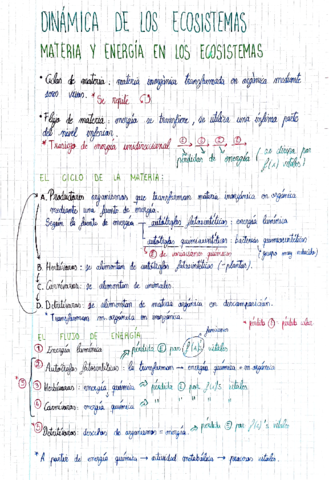 DINÁMICA DE LOS ECOSISTEMAS
MATERIA Y ENERGÍA EN LOS ECOSISTEMAS
* Ciclos de materia: materia inorgánica transformada en orgánica mediante
seres vivos. * Se repite
* Flujo de materia: energía se transfiere, se utiliza una ínfima parte
del nivel anterior.
* Trasiego de energía unidireccional
pérdidas de energía (se desvía por
f(x) vitales)
EL CICLO DE LA MATERIA:
A. Productores: organismos que transforman materia inorgánica en orgánica
mediante una fuente de energía.
Según la fuente de energía autótrofos fotosintéticos: energía lumínica
autótrofos quimiosintéticos: bacterias quimiosintéticas
de reacciones químicas (grupo muy reducido)
B. Herbívoros: se alimentan de autótrofos fotosintéticos (~plantas).
C. Carnívoros: se alimentan de animales.
D. Detritívoros: se alimentan de materia orgánica en descomposición.
* Transforman en orgánica en inorgánica.
EL FLUJO DE ENERGÍA funciones
* pérdida pérdida calor
① Energía lumínica pérdida por f(x) vitales
② Autótrofos fotosintéticos: la transforman → energía química en orgánica
③ Herbívoros: energía química pérdida por f(x)s vitales
④ Carnívoros: energía química " " "
⑤ Detritívoros: desechos de organismos = energía. pérdida por f(x)'s vitales
* A partir de energía química → actividad metabólica → procesos vitales.